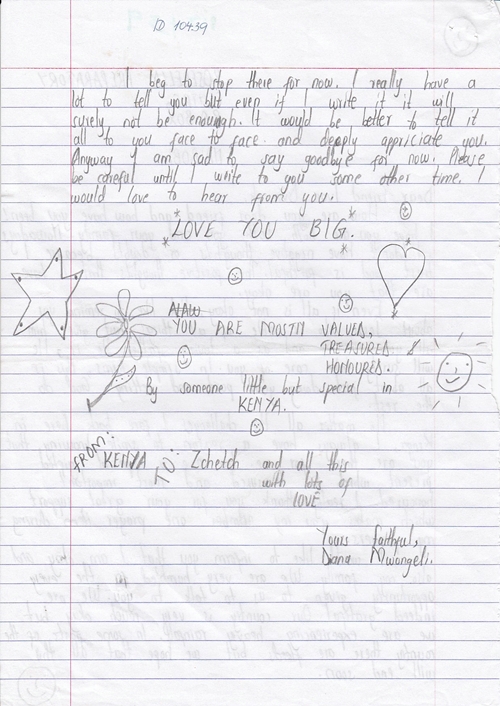 ID 10439
I beg to stop there for now. I really have a
lot to tell you but even if I write it it will
surely not be enough. It would be better to tell it
all to you face to face and deeply appriciate you.
Anyway I am sad to say goodbye for now. Please
be careful until I write to you some other time. I
would love to hear from you.
LOVE YOU BIG.
YOU ARE MOSTLY VALUED,
TREASURED &
HONOURED.
By someone little but special in
KENYA.
FROM: KENYA TO: Zchetch and all this
with lots of
LOVE
Yours faithful,
Diana Mwongeli.